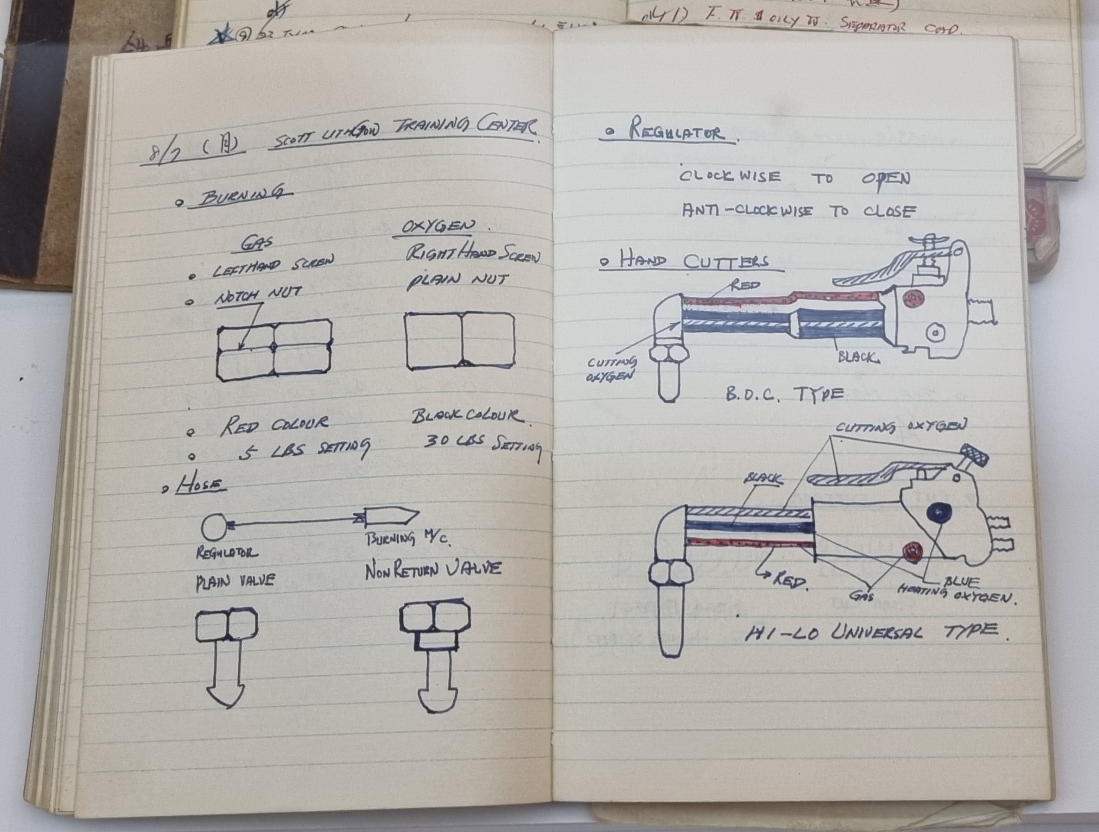 SEPARATOR
8/7 (月) SCOTT LITHGOW TRAINING CENTER
BURNING
GAS
LEFTHAND SCREN
NOTCH NUT
RED COLOUR
5 LBS SETTING
OXYGEN.
RIGHT HAND SCREN
PLAIN NUT
BLACK COLOUR.
30 LBS SETTING
HOSE
REGULATOR
BURNING M/C.
PLAIN VALVE
NON RETURN VALVE
REGULATOR.
CLOCKWISE TO OPEN
ANTI-CLOCKWISE TO CLOSE
HAND CUTTERS
RED
CUTTING
OXYGEN
BLACK
B.O.C. TYPE
CUTTING OXYGEN
BLACK
RED.
GAS
BLUE
HEATING OXYGEN.
HI-LO UNIVERSAL TYPE.